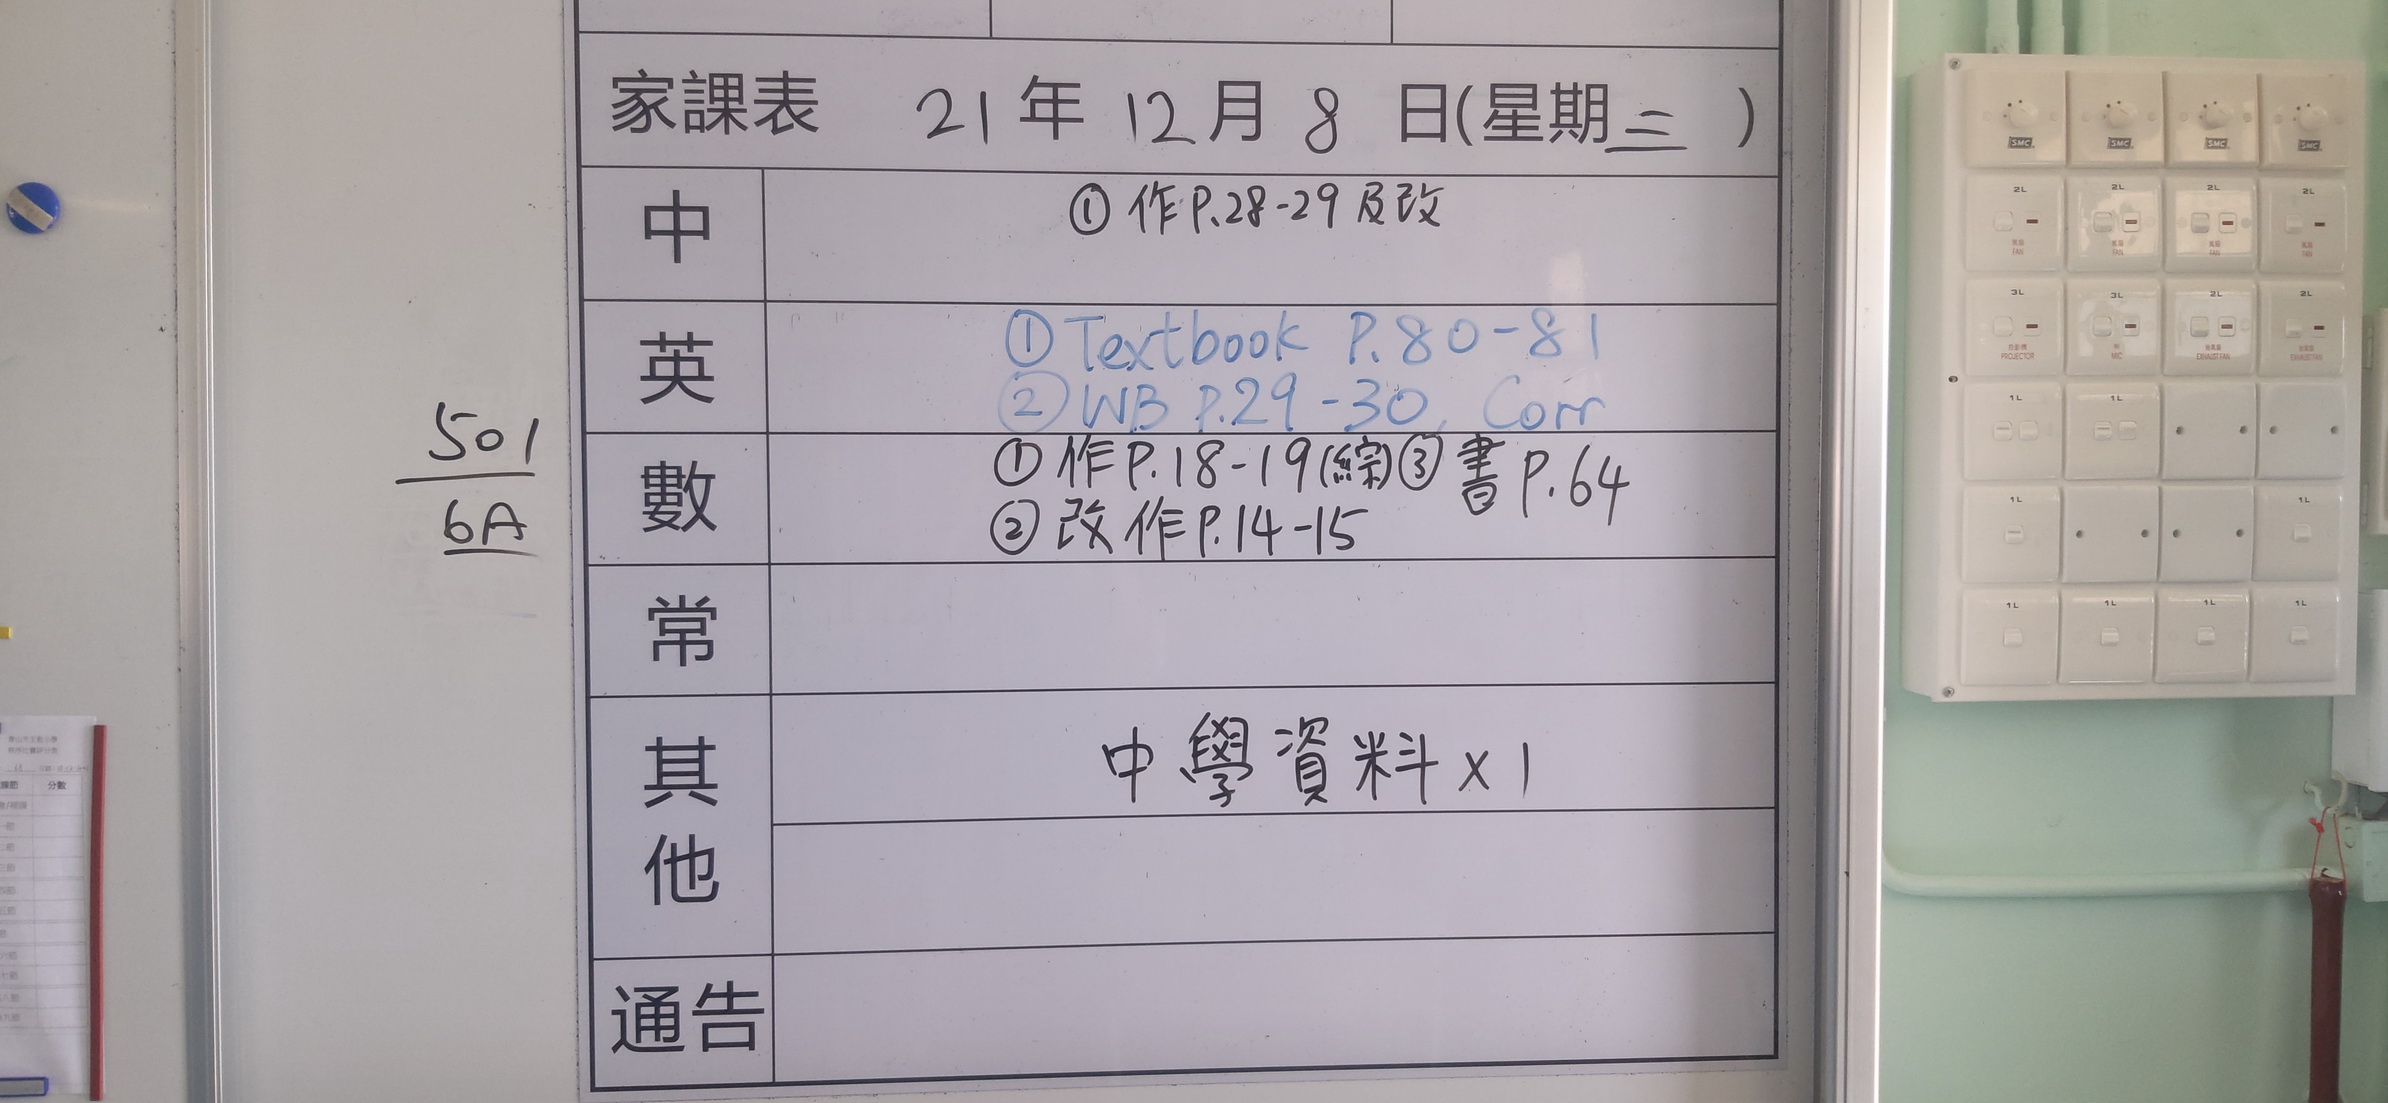 家課表 21年12月8日(星期三)
中 ①作P.28-29及改
英 ①Textbook P.80-81
②WB P.29-30, Corr
數 ①作P.18-19(綜)③書P.64
②改作P.14-15
常
其他 中學資料x1
通告
501
6A
分數
SMC SMC SMC SMC
2L 2L 2L 2L
風扇 風扇 風扇 風扇
FAN FAN FAN FAN
3L 3L 2L 2L
投影機 咪 抽氣扇 抽氣扇
PROJECTOR MIC EXHAUST FAN EXHAUST FAN
1L 1L
1L 1L
1L 1L 1L 1L